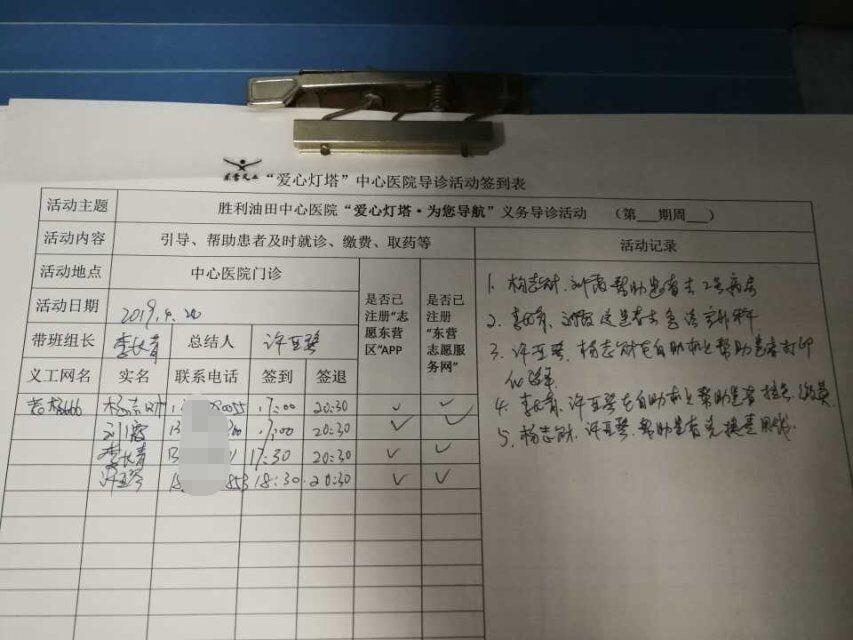 东营义工 “爱心灯塔”中心医院导诊活动签到表
活动主题 胜利油田中心医院“爱心灯塔·为您导航”义务导诊活动 (第___期周___)
活动内容 引导、帮助患者及时就诊、缴费、取药等 活动记录
活动地点 中心医院门诊 是否已注册“志愿东营区”APP 是否已注册“东营志愿服务网”
活动日期 2019.4.20
带班组长 李长青 总结人 许亚琴
义工网名 实名 联系电话 签到 签退
杨志财 17:00 20:30 ✓ ✓
刘霞 17:00 20:30 ✓ ✓
李长青 17:30 20:30 ✓ ✓
许亚琴 18:30 20:30 ✓ ✓
1. 杨志财、刘霞帮助患者去2号病房
2. 李长青、刘霞送患者去急诊
3. 许亚琴、杨志财在自助机上帮助患者打印
4. 李长青、许亚琴在自助机上帮助患者挂号、缴费
5. 杨志财、许亚琴、帮助患者兑换零用钱.